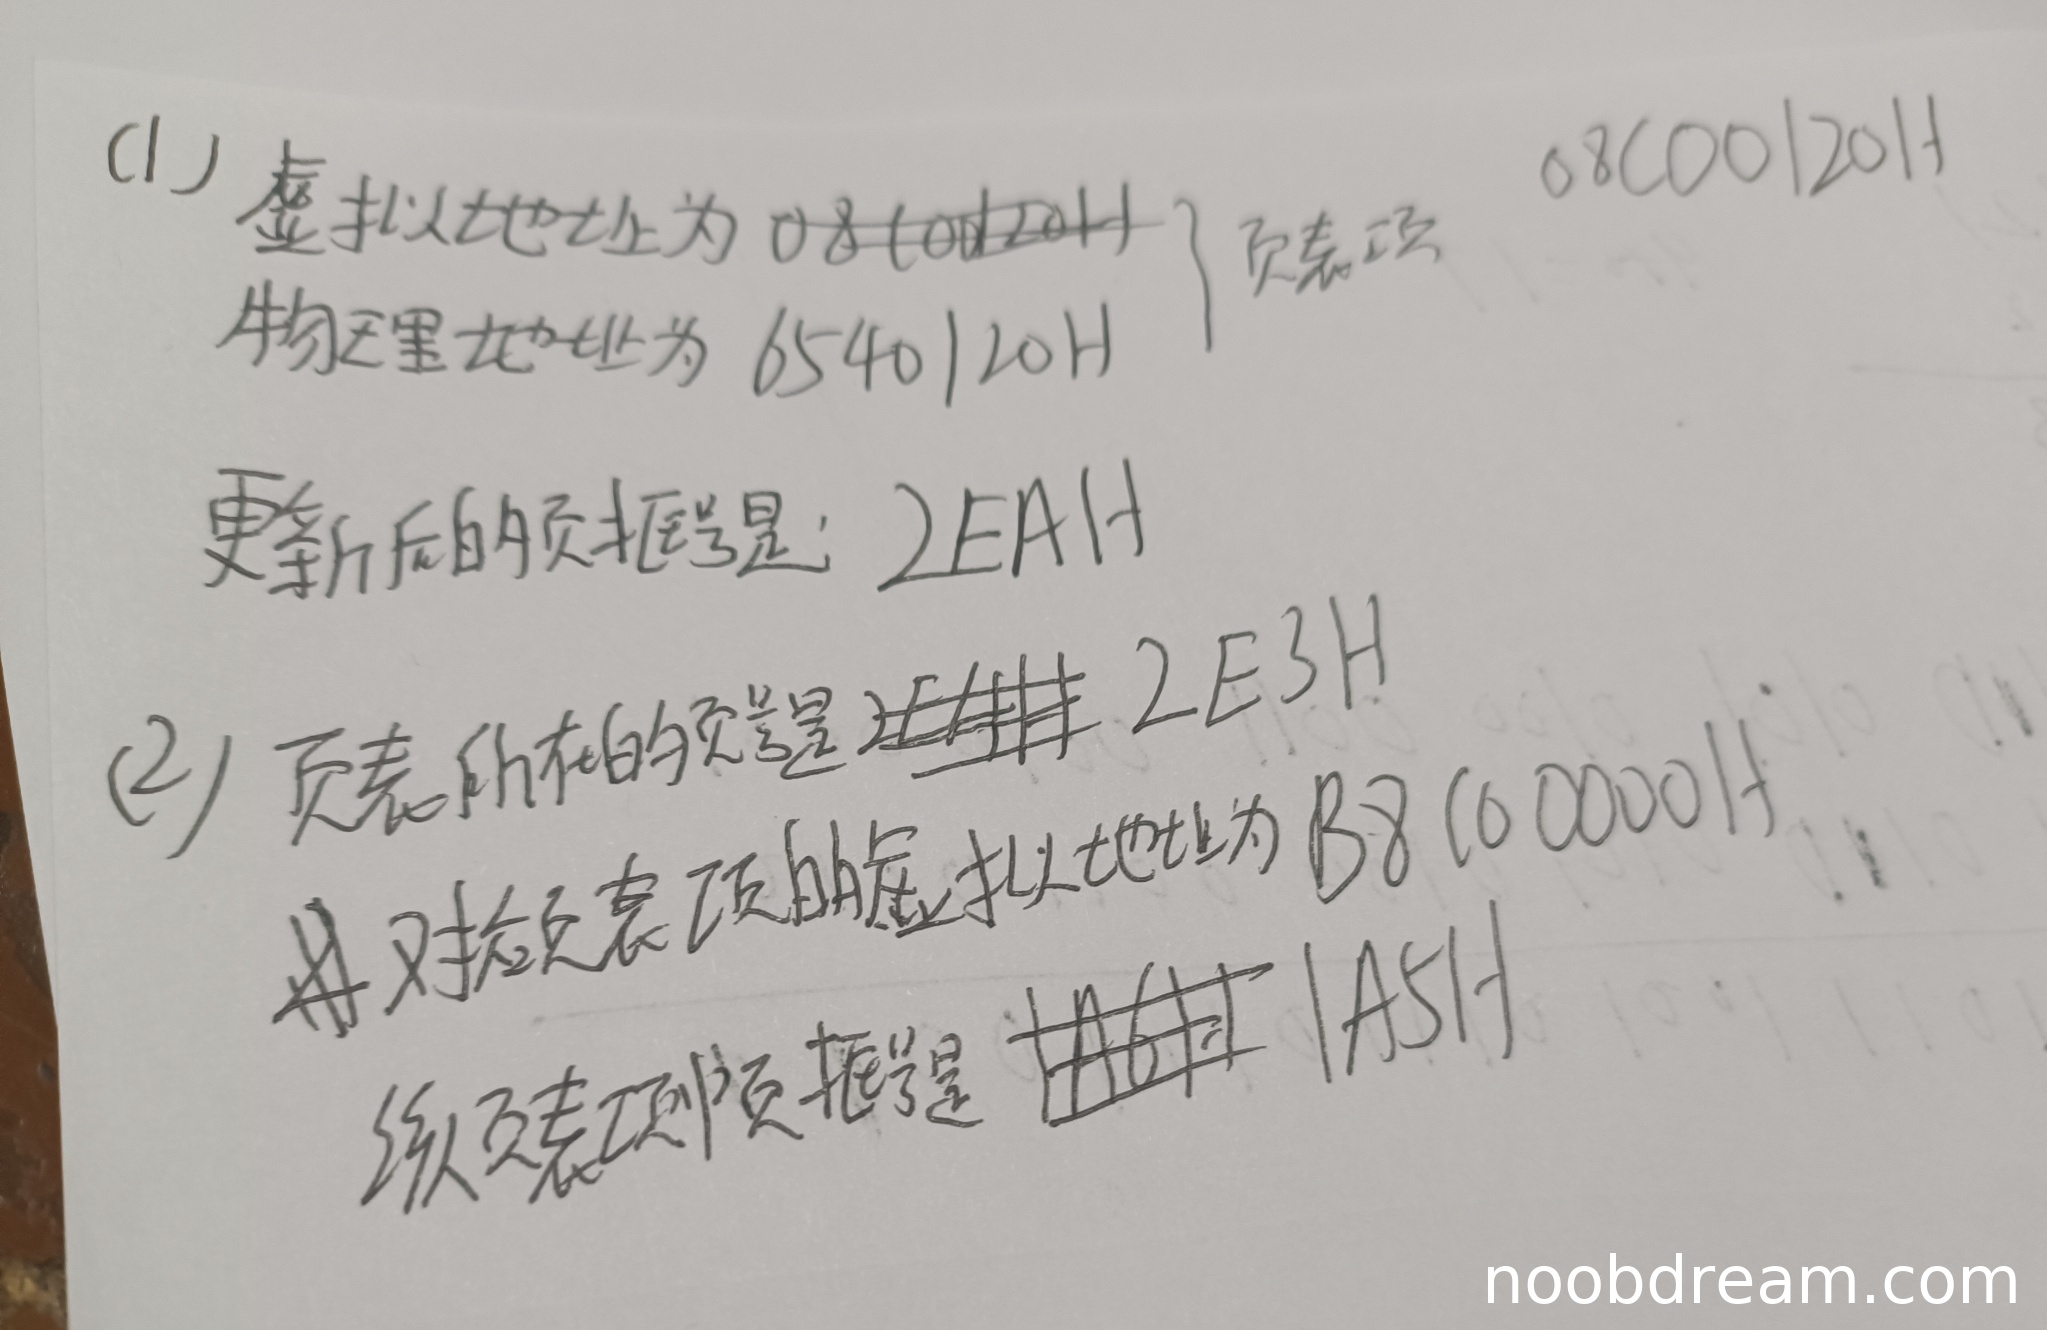 08C00120H
(1) 虚拟地址为 08C00120H } 页表项
物理地址为 6540120H
更新后的页框号是: 2EAH
(2) 页表所在的页号是 2E3H
对抬页表项的虚拟地址为 B8C00000H
级页表项的页框号是 1A5H
noobdream.com